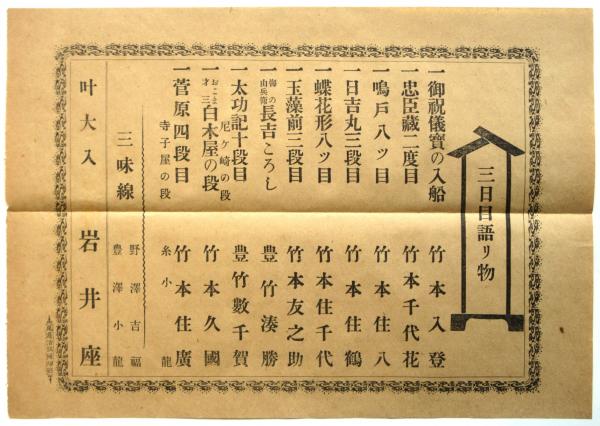 三日目語リ物
一御祝儀寶の入船 竹本入登
一忠臣藏二度目 竹本千代花
一鳴戸八ッ目 竹本住八
一日吉丸三段目 竹本住鶴
一蝶花形八ッ目 竹本住千代
一玉藻前三段目 竹本友之助
一梅の由兵衛長吉ころし 豊竹湊勝
一太功記十段目 尼ヶ崎の段 豊竹數千賀
一おこま才三白木屋の段 竹本久國
一菅原四段目 寺子屋の段 竹本住廣
糸小龍
三味線 野澤吉福
豊澤小龍
叶大入 岩井座